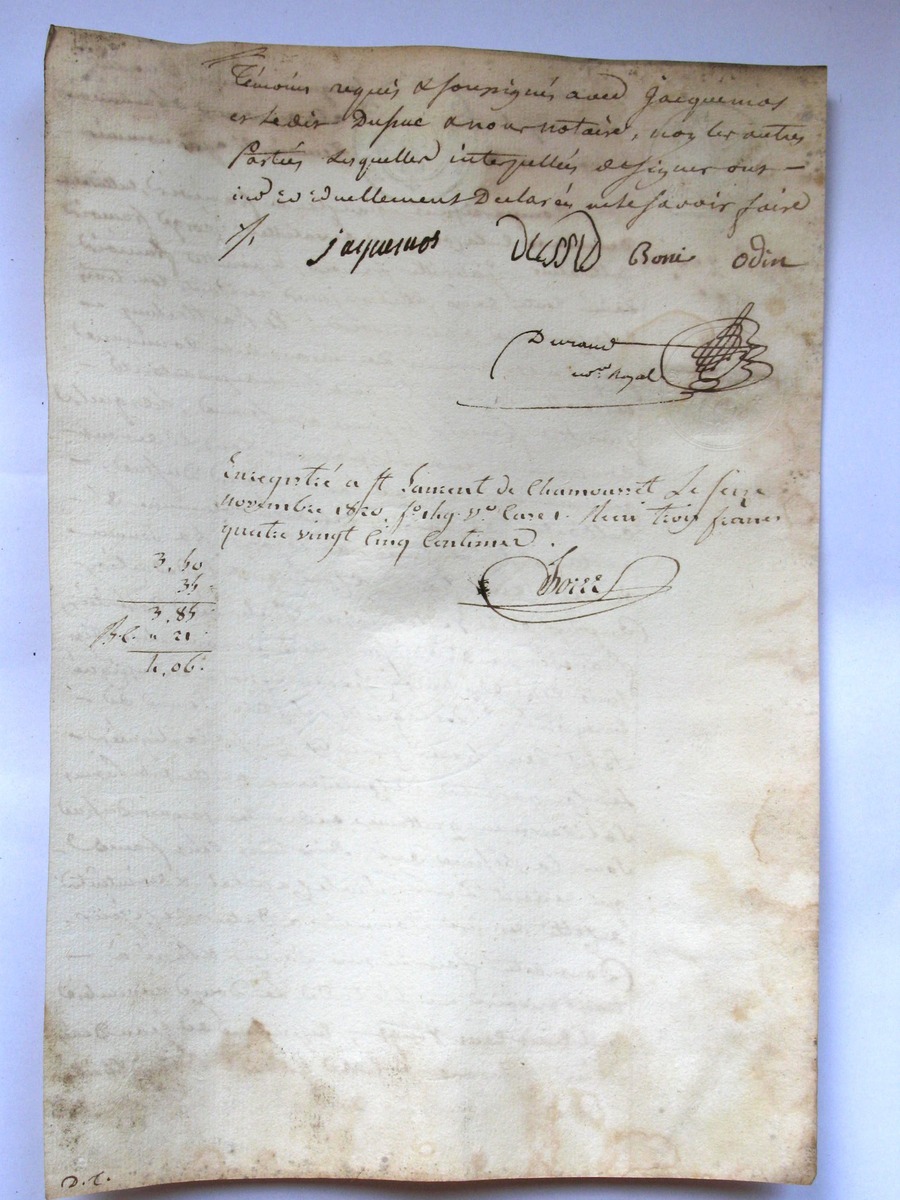 Témoins requis & soussignés avec jacquemos
et ledit Dupuc & nous notaire, non les autres
Parties lesquelles interpellées de signer ont —
individuellement Declarés ne le savoir faire
jaquemos Boni Odin
Durand
not. Royal
Enregistré a St Laurent de Chamousset Le Seize
novembre 1820. fo. 149. Vo. Case 1. Reçu trois francs
quatre vingt Cinq Centimes.
3,50
35
3,85
21
4,06
D.C.